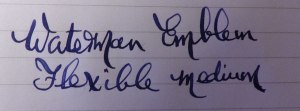 Waterman Emblem
Flexible medium